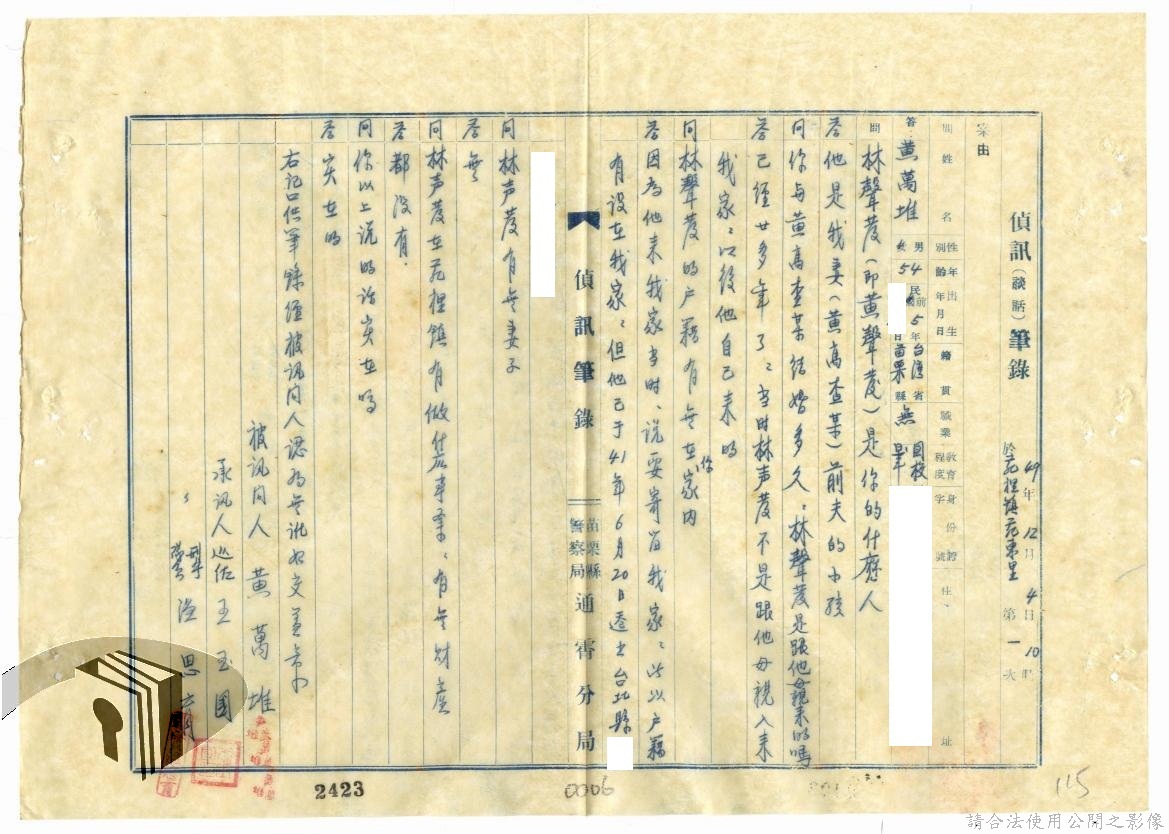 偵訊(談話)筆錄
49年12月4日10時
於苑裡鎮苑東里 第一次
案由
問 姓名 性別 年齡 出生年月日 籍貫 職業 教育程度 身份證字號 住址
答 黃萬堆 男 54 民前5年 台灣省苗栗縣 無 國校畢
問 林聲發(即黃聲發)是你的什麼人
答 他是我妻(黃高查某)前夫的小孩
問 你与黃高查某結婚多久、林聲发是跟他母親来的嗎
答 已經廿多年了、当时林声发不是跟他母親入来
我家、以後他自己来的
問 林聲发的户籍有無在你家内
答 因為他来我家当时、说要寄留我家、所以户籍
有设在我家、但他已于41年6月20日遷出台北縣
偵訊筆錄
苗栗縣警察局通霄分局
問 林声发有無妻子
答 無
問 林声发在苑裡鎮有做什么事業、有無財產
答 都没有.
問 你以上说的话实在嗎
答 实在的
右記口供筆錄經被讯问人認為無讹始交蓋章
被讯问人 黃萬堆
承讯人 巡佐 王玉国
〃 警員
2423
0006
115
請合法使用公開之影像